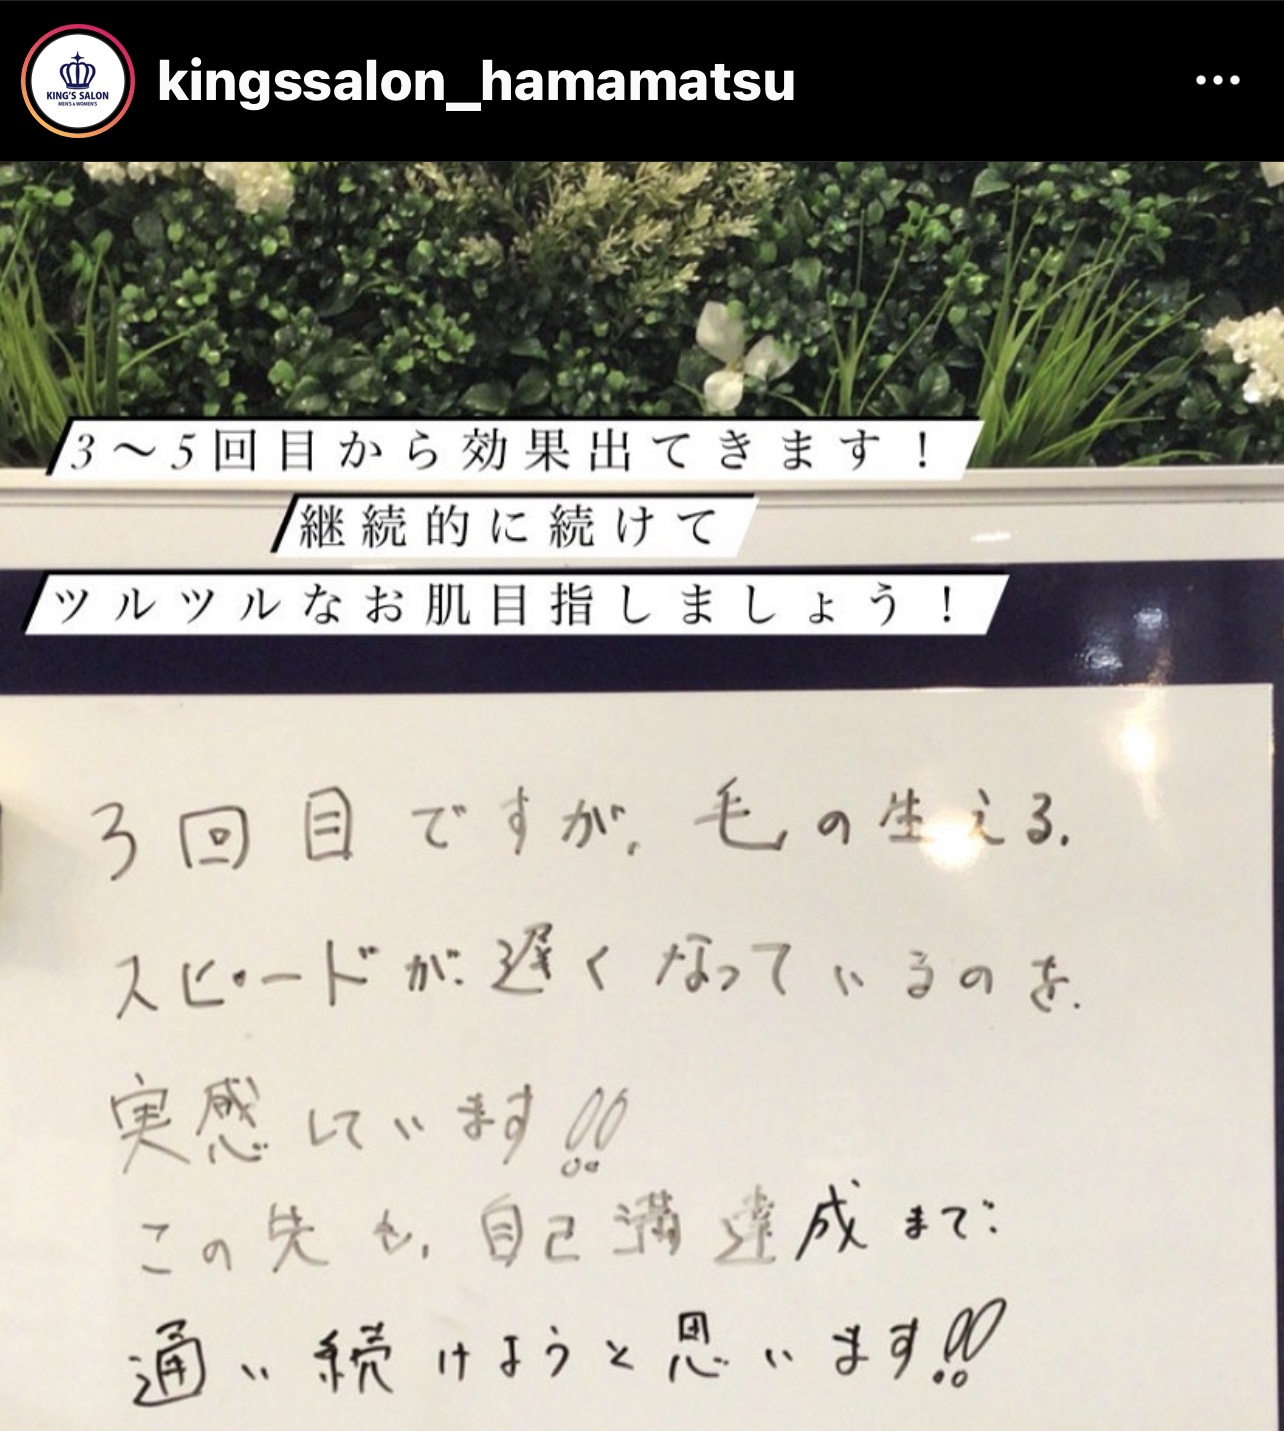 KING'S SALON
MEN'S & WOMEN'S
kingssalon_hamamatsu
3〜5回目から効果出てきます！
継続的に続けて
ツルツルなお肌目指しましょう！
3回目ですが、毛の生える、
スピードが遅くなっているのを、
実感しています!!
この先も、自己満達成まで、
通い続けようと思います!!